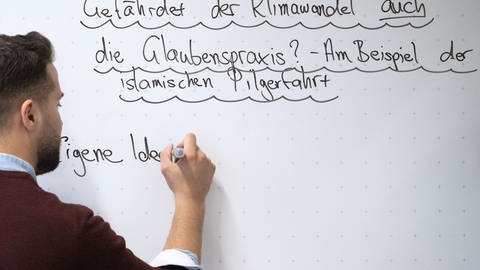 Gefährdet der Klimawandel auch
die Glaubenspraxis? - Am Beispiel der
islamischen Pilgerfahrt
Eigene Idee